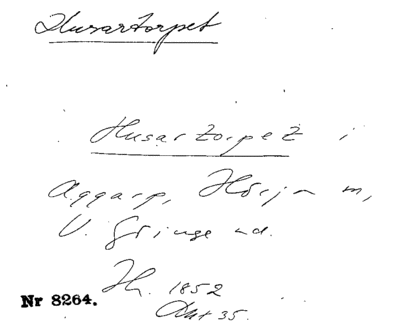 Husartorpet
Husartorpet i
Aggarp, Hörja sn,
V. Göinge hd.
Hl. 1852
Nr 8264.